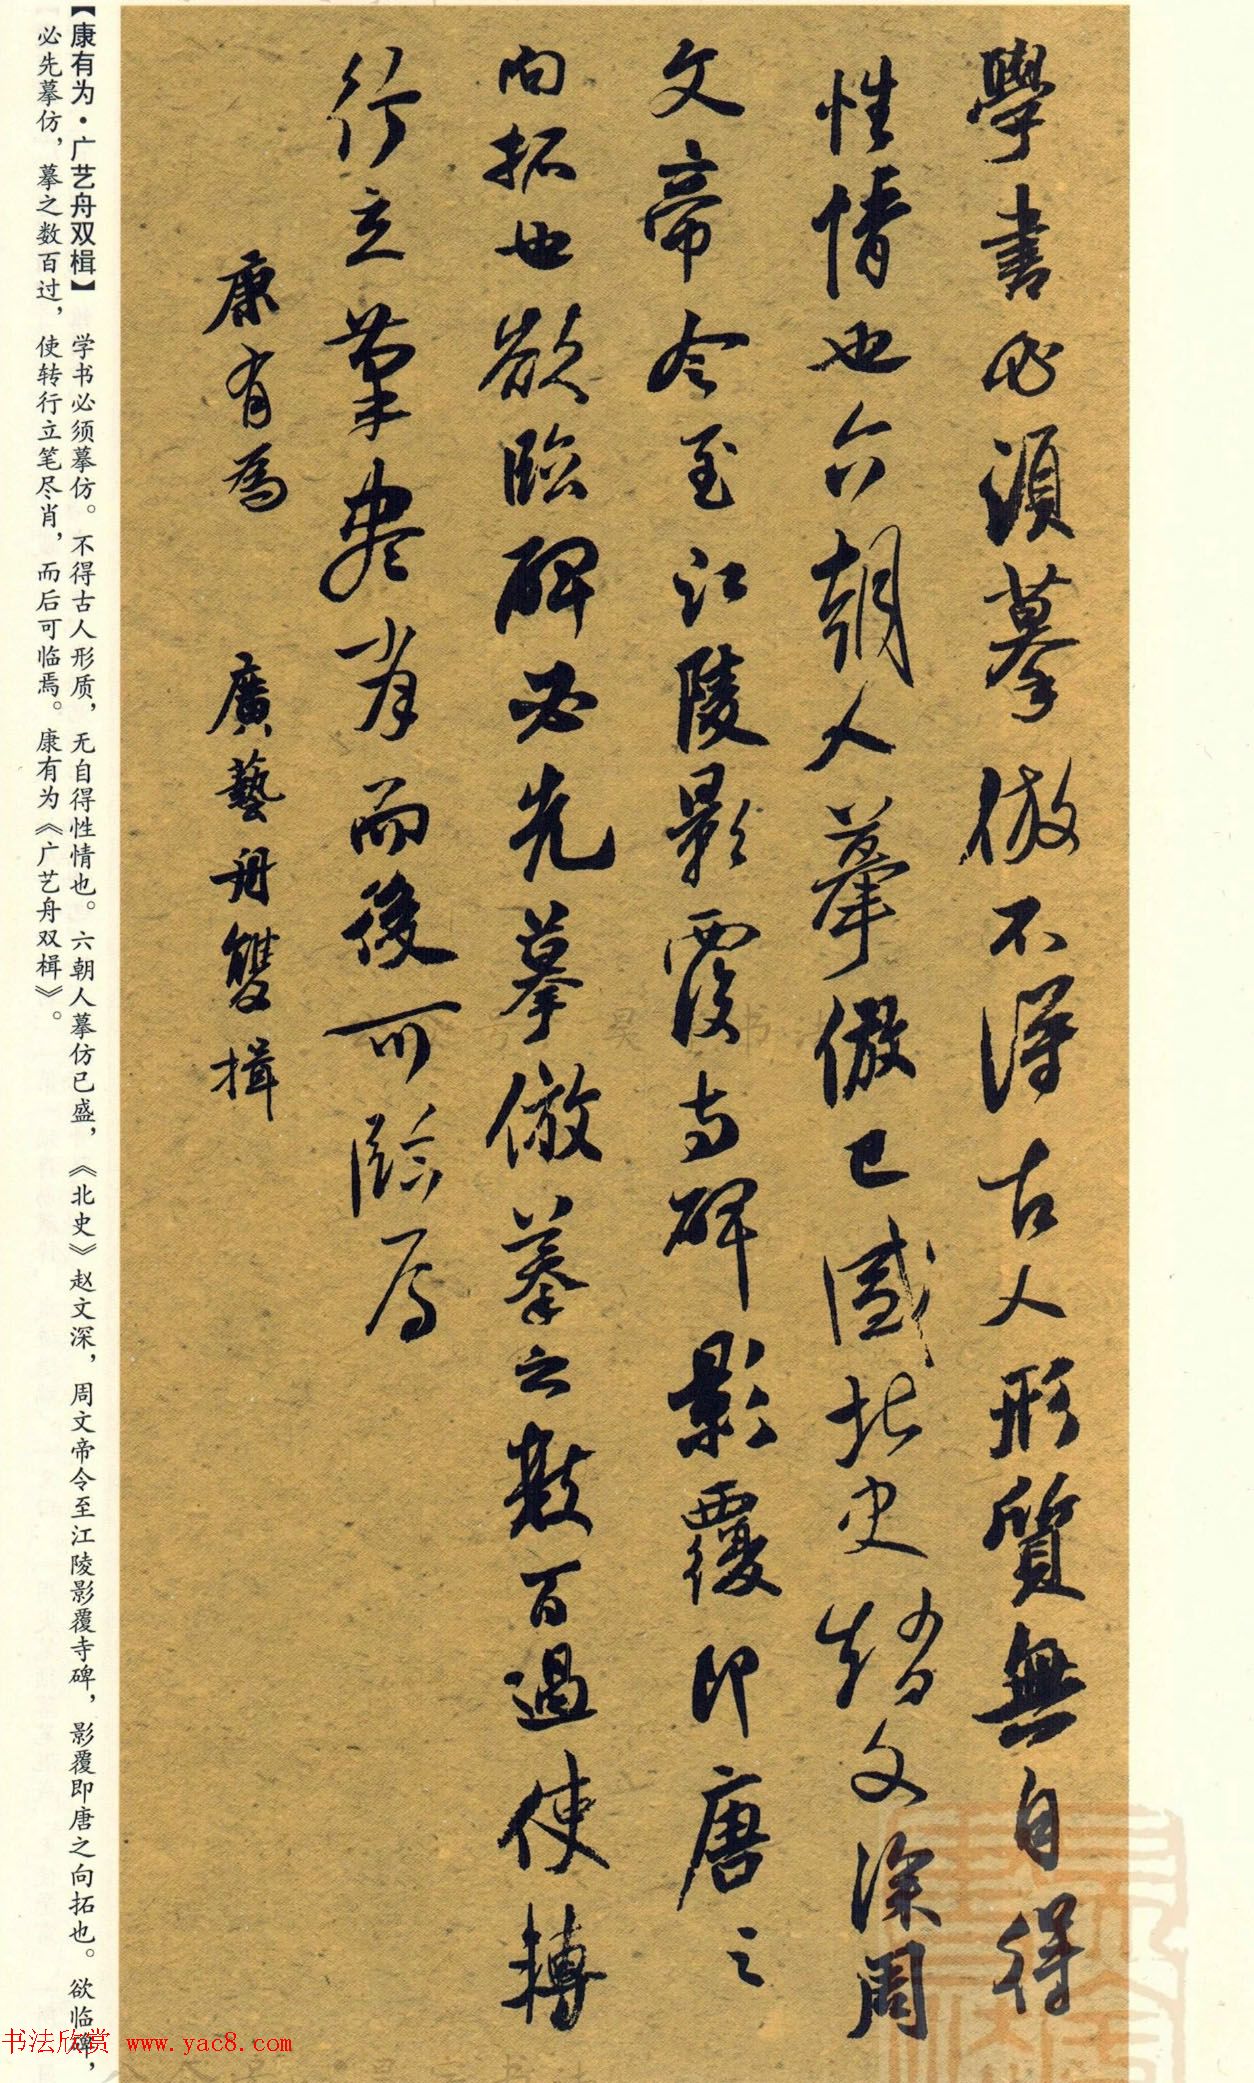 學書必須摹倣不得古人形質無自得
性情也六朝人摹倣已盛北史趙文深周
文帝令至江陵影覆寺碑影覆即唐之
向拓也欲臨碑必先摹倣摹之數百過使轉
行立筆盡肖而後可臨焉
康有為 廣藝舟雙楫
【康有为·广艺舟双楫】 学书必须摹仿。不得古人形质，无自得性情也。六朝人摹仿已盛，《北史》赵文深，周文帝令至江陵影覆寺碑，影覆即唐之向拓也。欲临碑，
必先摹仿，摹之数百过，使转行立笔尽肖，而后可临焉。康有为《广艺舟双楫》。
书法欣赏 www.yac8.com